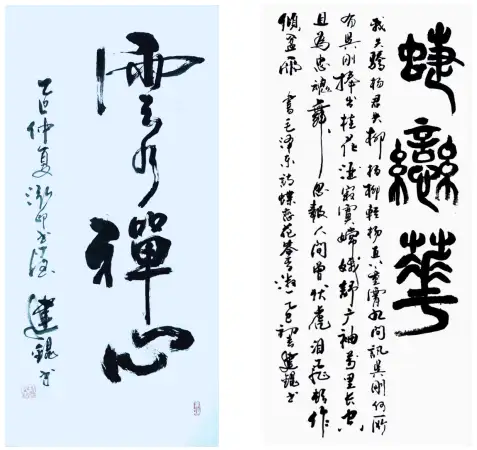 雲水禪心
乙巳仲夏
建錕书
蝶戀華
我失骄杨君失柳 杨柳轻扬直上重霄九问訊吴刚何所
有吴刚捧出桂花酒寂寞嫦娥舒广袖万里长空
且為忠魂舞 忽報人间曾伏虎泪飛顿作
倾盆雨 書毛泽东詩蝶恋花答李淑一 乙巳 建錕书